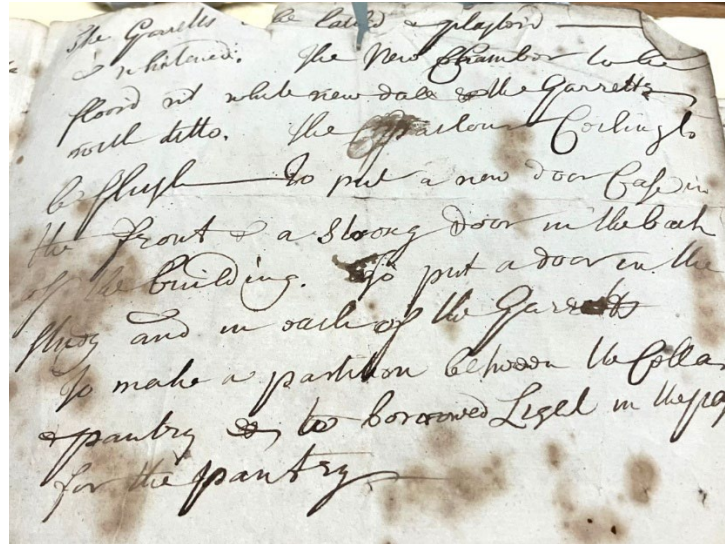 The Garretts be lathd & plastord
& whitened. The New Chamber to be
floord wt white new dale & the Garretts
with ditto. The Parlour Ceiling to
be flush To put a new door Case in
the front & a Strong door in the back
of the building. To put a door in the
study and in each of the Garretts
To make a partition between the Cellar
& pantry & to borrowed Light in the
for the pantry